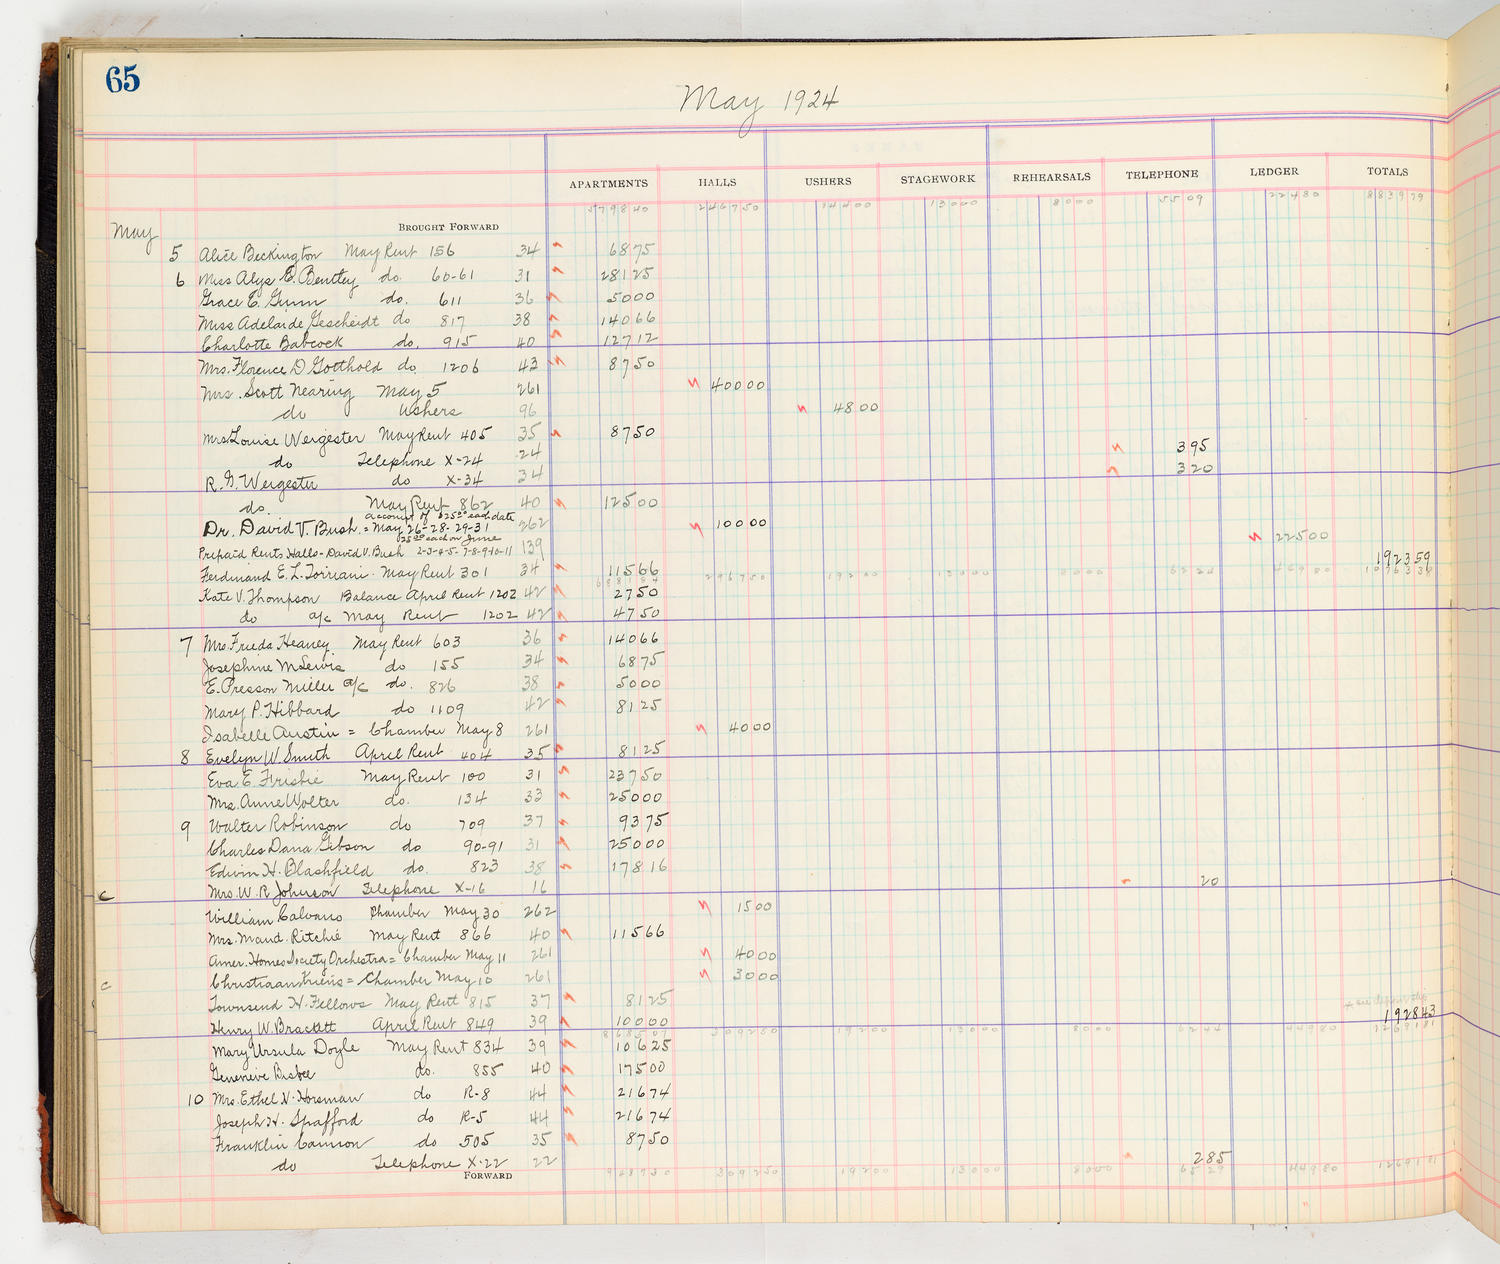 65
May 1924
APARTMENTS HALLS USHERS STAGEWORK REHEARSALS TELEPHONE LEDGER TOTALS
579840 246750 14400 13000 8000 5509 22480 883979
May BROUGHT FORWARD
5 Alice Beckington May Rent 156 34 6875
6 Miss Alys E. Bentley do. 60-61 31 28125
Grace E. Gunn do. 611 36 5000
Miss Adelaide Gescheidt do 817 38 14066
Charlotte Babcock do. 915 40 12712
Mrs. Florence D Gotthold do. 1206 43 8750
Mrs. Scott Nearing May 5 261 40000
do Ushers 96 4800
Mrs Louise Wergester May Rent 405 35 8750
do Telephone X-24 24 395
R. G. Wergester do X-34 34 320
do. May Rent 862 40 12500
account of $25.00 each date
Dr. David V. Bush = May 26-28-29-31 262 10000
25.00 each on June
Prepaid Rents Halls - David V. Bush 2-3-4-5-7-8-9-10-11 139 22500
Ferdinand E. L. Torriani. May Rent 301 34 11566 192359
688154 296750 19200 13000 8000 6224 44980 1076338
Kate V. Thompson Balance April Rent 1202 42 2750
do a/c May Rent 1202 42 4750
7 Mrs. Frieda Heaney May Rent 603 36 14066
Josephine M Lewis do 155 34 6875
E. Presson Miller a/c do. 826 38 5000
Mary P. Hibbard do 1109 42 8125
Isabelle Austin = Chamber May 8 261 4000
8 Evelyn W. Smith April Rent 404 35 8125
Eva E. Frisbie May Rent 100 31 23750
Mrs. Anne Wolter do. 134 33 25000
9 Walter Robinson do 709 37 9375
Charles Dana Gibson do 90-91 31 25000
Edwin H. Blashfield do. 823 38 17816
c Mrs. W. R Johnson Telephone X-16 16 20
William Calvano Chamber May 30 262 1500
Mrs. Maud Ritchie May Rent 866 40 11566
Amer. Homes Society Orchestra = Chamber May 11 261 4000
c Christiaan Kriens = Chamber May 10 261 3000
Townsend H. Fellows May Rent 815 37 8125
Henry W. Brackett April Rent 849 39 10000 192843
309250 19200 13000 8000 6244 44980
Mary Ursula Doyle May Rent 834 39 10625
Genevieve Bisbee do. 855 40 17500
10 Mrs. Ethel N. Horsman do R-8 44 21674
Joseph H. Spafford do R-5 44 21674
Franklin Cannon do 505 35 8750
do Telephone X-22 22 285
FORWARD 309250 19200 13000 8000 6529 44980